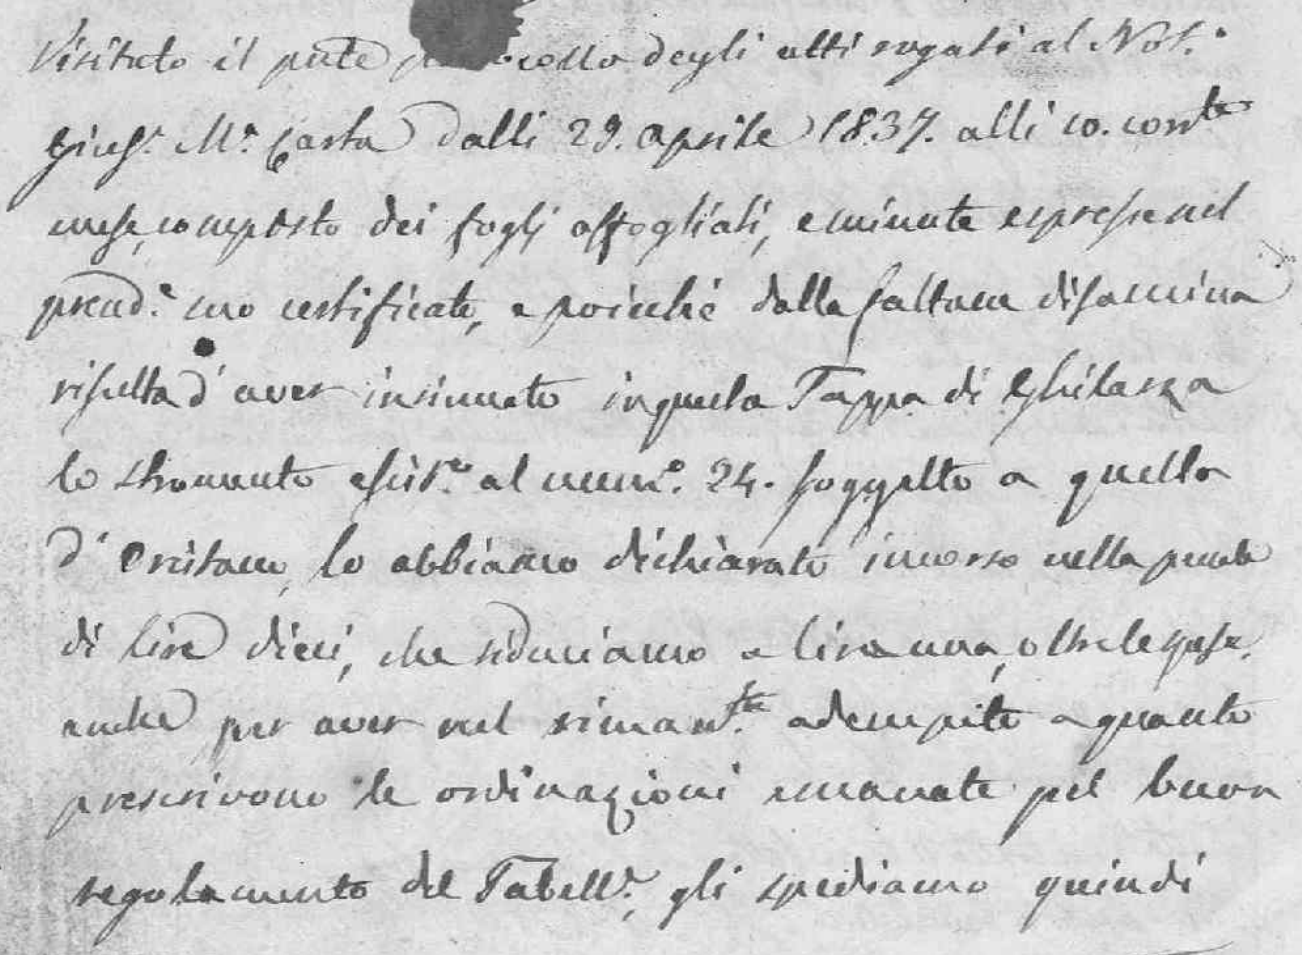 Visitato il pnte protocollo degli atti rogati al Not.º
Gius.e M.a Carta dalli 29. Aprile 1837. alli 10. corr.te
mese, composto dei fogli affogliati, e minute espresse nel
preced.e suo certificato, e poicché dalla fattane disamina
risulta d'aver insinuato in questa Tappa di Ghilarza
lo stromento al num.º 24. soggetto a quella
d'Oristano, lo abbiamo dichiarato incorso nella penale
di lire dieci, che riduciamo a lire una, oltre le spese,
anche per aver nel riman.te adempito a quanto
prescrivono le ordinazioni emanate pel buon
regolamento del Tabell.e, gli spediamo quindi